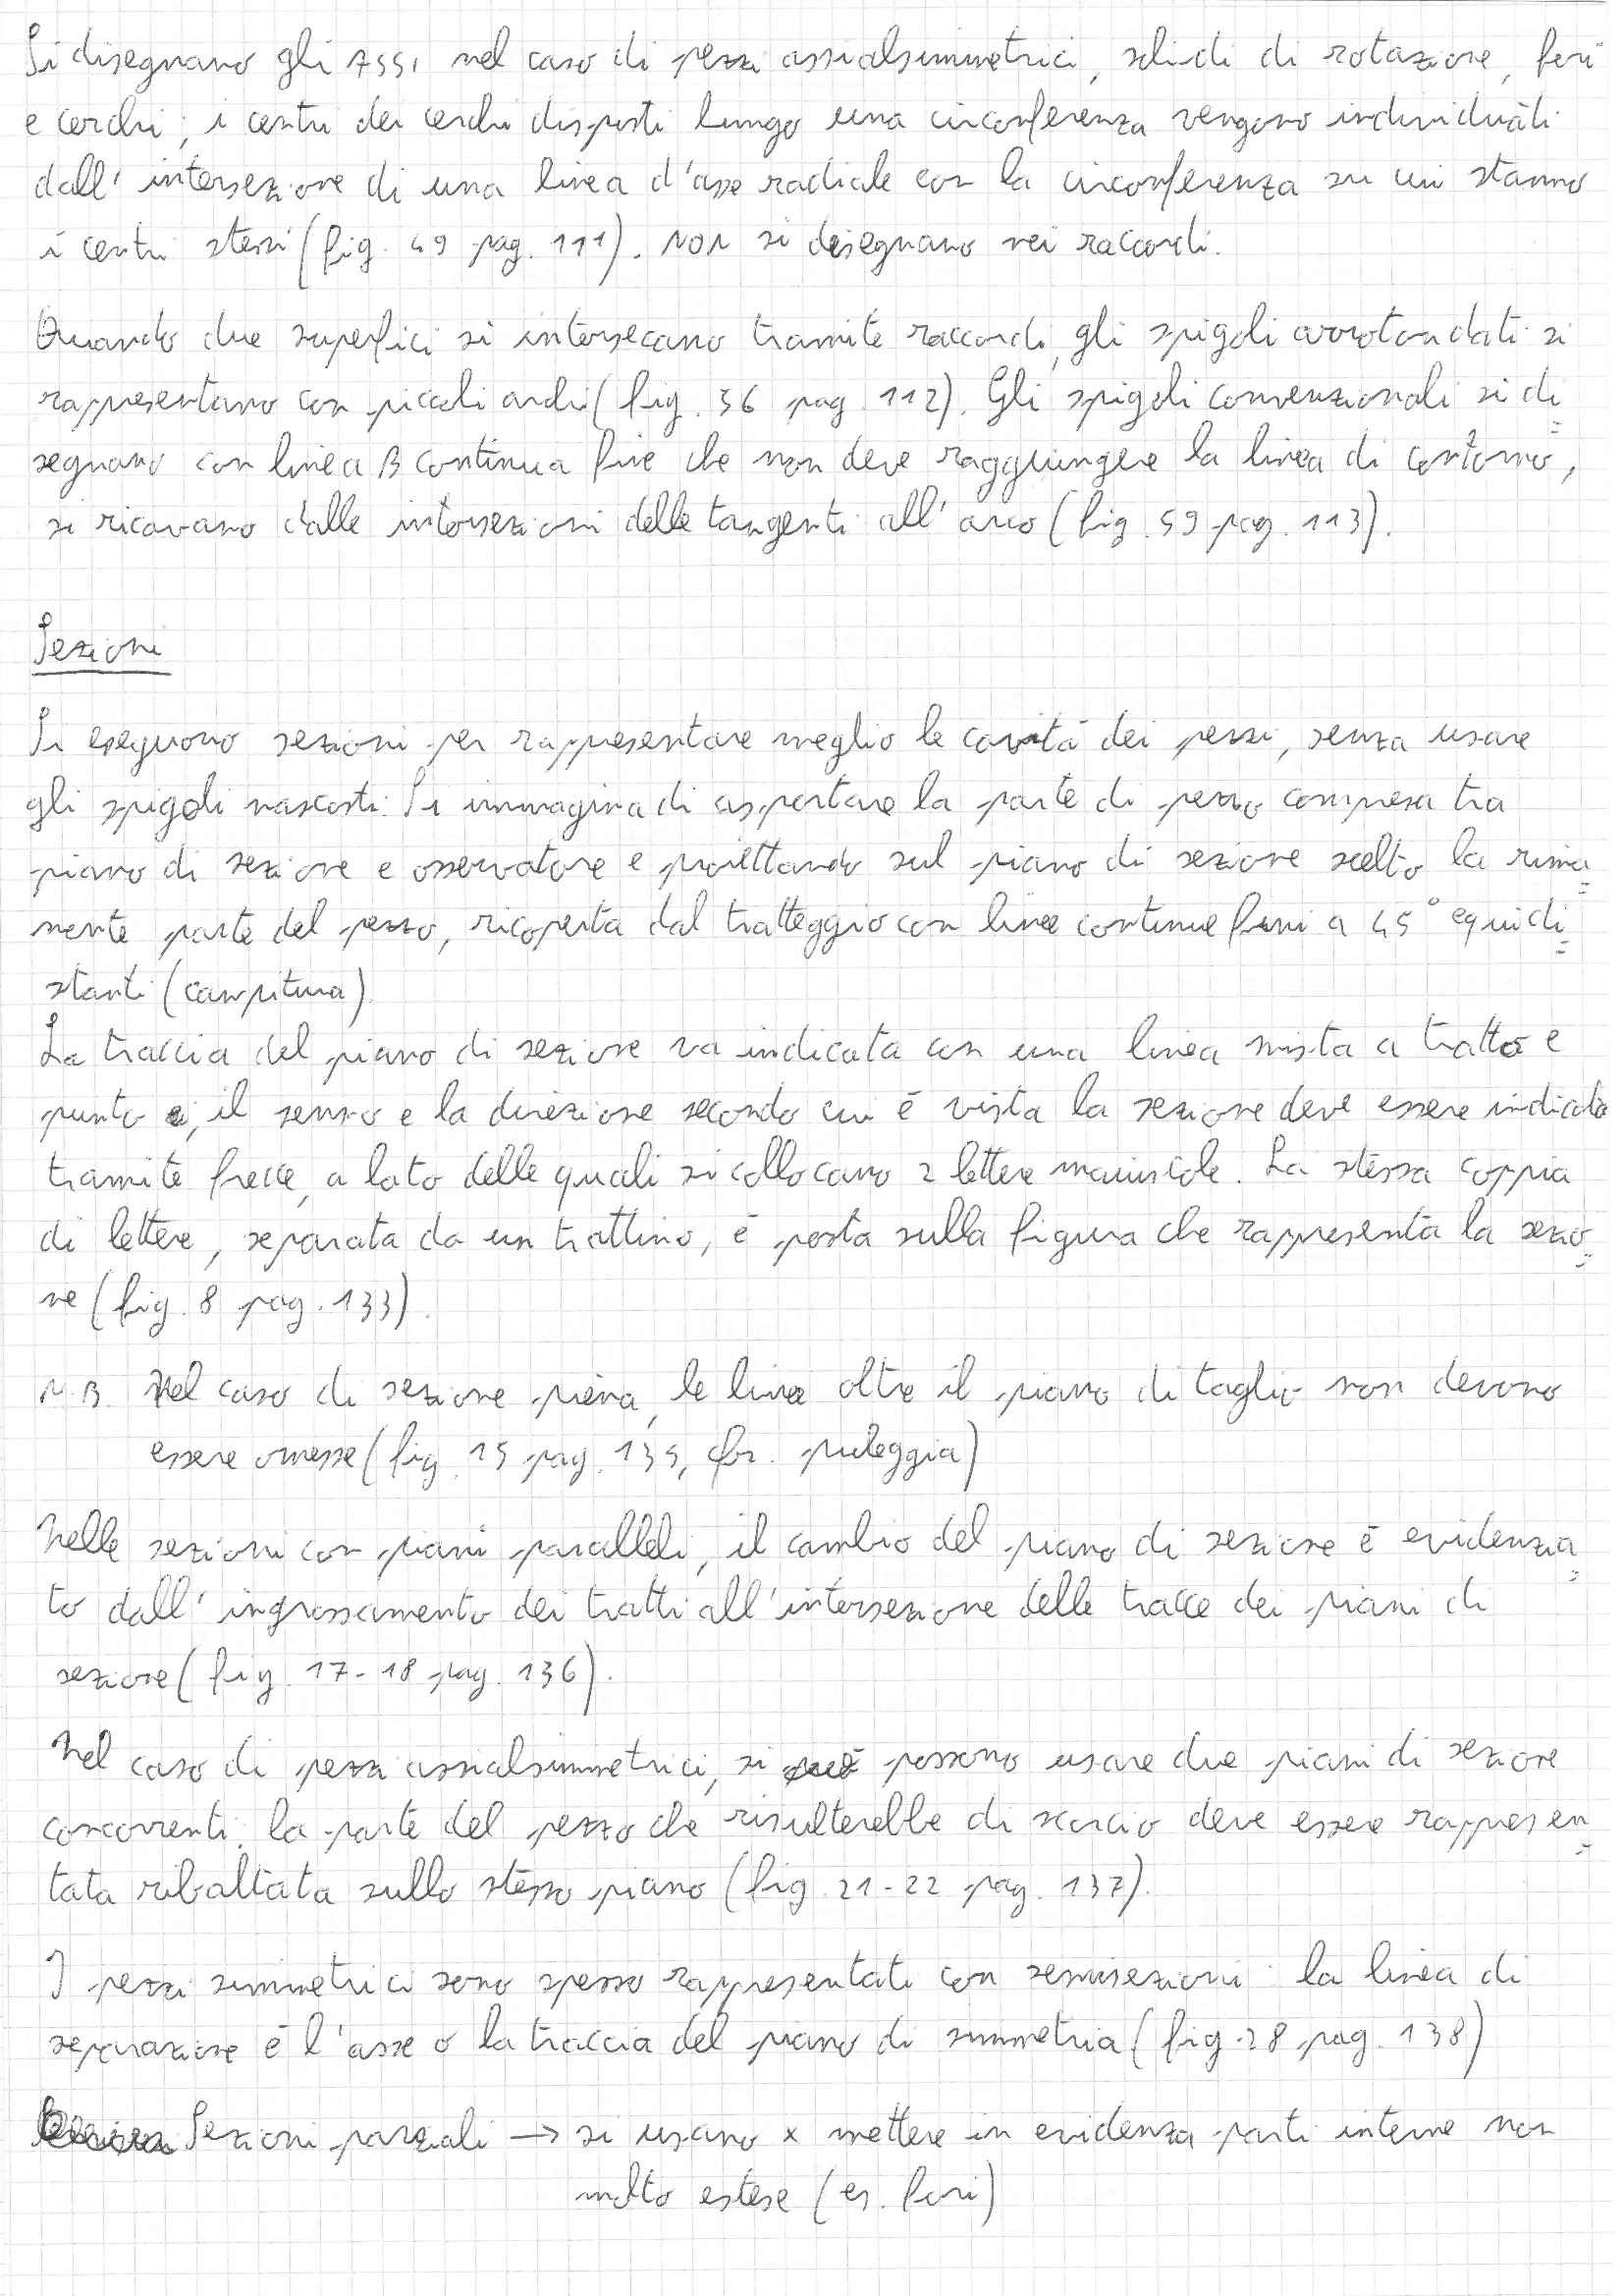 Si disegnano gli ASSI nel caso di pezzi assialsimmetrici, solidi di rotazione, fori
e cerchi; i centri dei cerchi disposti lungo una circonferenza vengono individuati
dall'intersezione di una linea d'asse radiale con la circonferenza su cui stanno
i centri stessi (fig. 49 pag. 111). NON si disegnano nei raccordi.
Quando due superfici si intersecano tramite raccordi, gli spigoli arrotondati si
rappresentano con piccoli archi (fig. 56 pag. 112). Gli spigoli convenzionali si di=
segnano con linea B continua fine che non deve raggiungere la linea di contorno,
si ricavano dalle intersezioni delle tangenti all'arco (fig. 59 pag. 113).
Sezioni
Si eseguono sezioni per rappresentare meglio le cavità dei pezzi, senza usare
gli spigoli nascosti. Si immagina di asportare la parte di pezzo compresa tra
piano di sezione e osservatore e proiettando sul piano di sezione scelto la rima=
nente parte del pezzo, ricoperta dal tratteggio con linee continue fini a 45° equidi=
stanti (campitura).
La traccia del piano di sezione va indicata con una linea mista a tratto e
punto, il senso e la direzione secondo cui è vista la sezione deve essere indicata
tramite frecce, a lato delle quali si collocano 2 lettere maiuscole. La stessa coppia
di lettere, separata da un trattino, è posta sulla figura che rappresenta la sezio=
ne (fig. 8 pag. 133).
N.B. Nel caso di sezione piena, le linee oltre il piano di taglio non devono
essere omesse (fig. 15 pag. 135, puleggia)
Nelle sezioni con piani paralleli, il cambio del piano di sezione è evidenzia=
to dall'ingrossamento dei tratti all'intersezione delle tracce dei piani di
sezione (fig. 17-18 pag. 136).
Nel caso di pezzi assialsimmetrici, si possono usare due piani di sezione
concorrenti: la parte del pezzo che risulterebbe di scorcio deve essere rappresen=
tata ribaltata sullo stesso piano (fig. 21-22 pag. 137).
I pezzi simmetrici sono spesso rappresentati con semisezioni: la linea di
separazione è l'asse o la traccia del piano di simmetria (fig. 28 pag. 138)
Sezioni parziali → si usano x mettere in evidenza parti interne non
molto estese (es. fori)